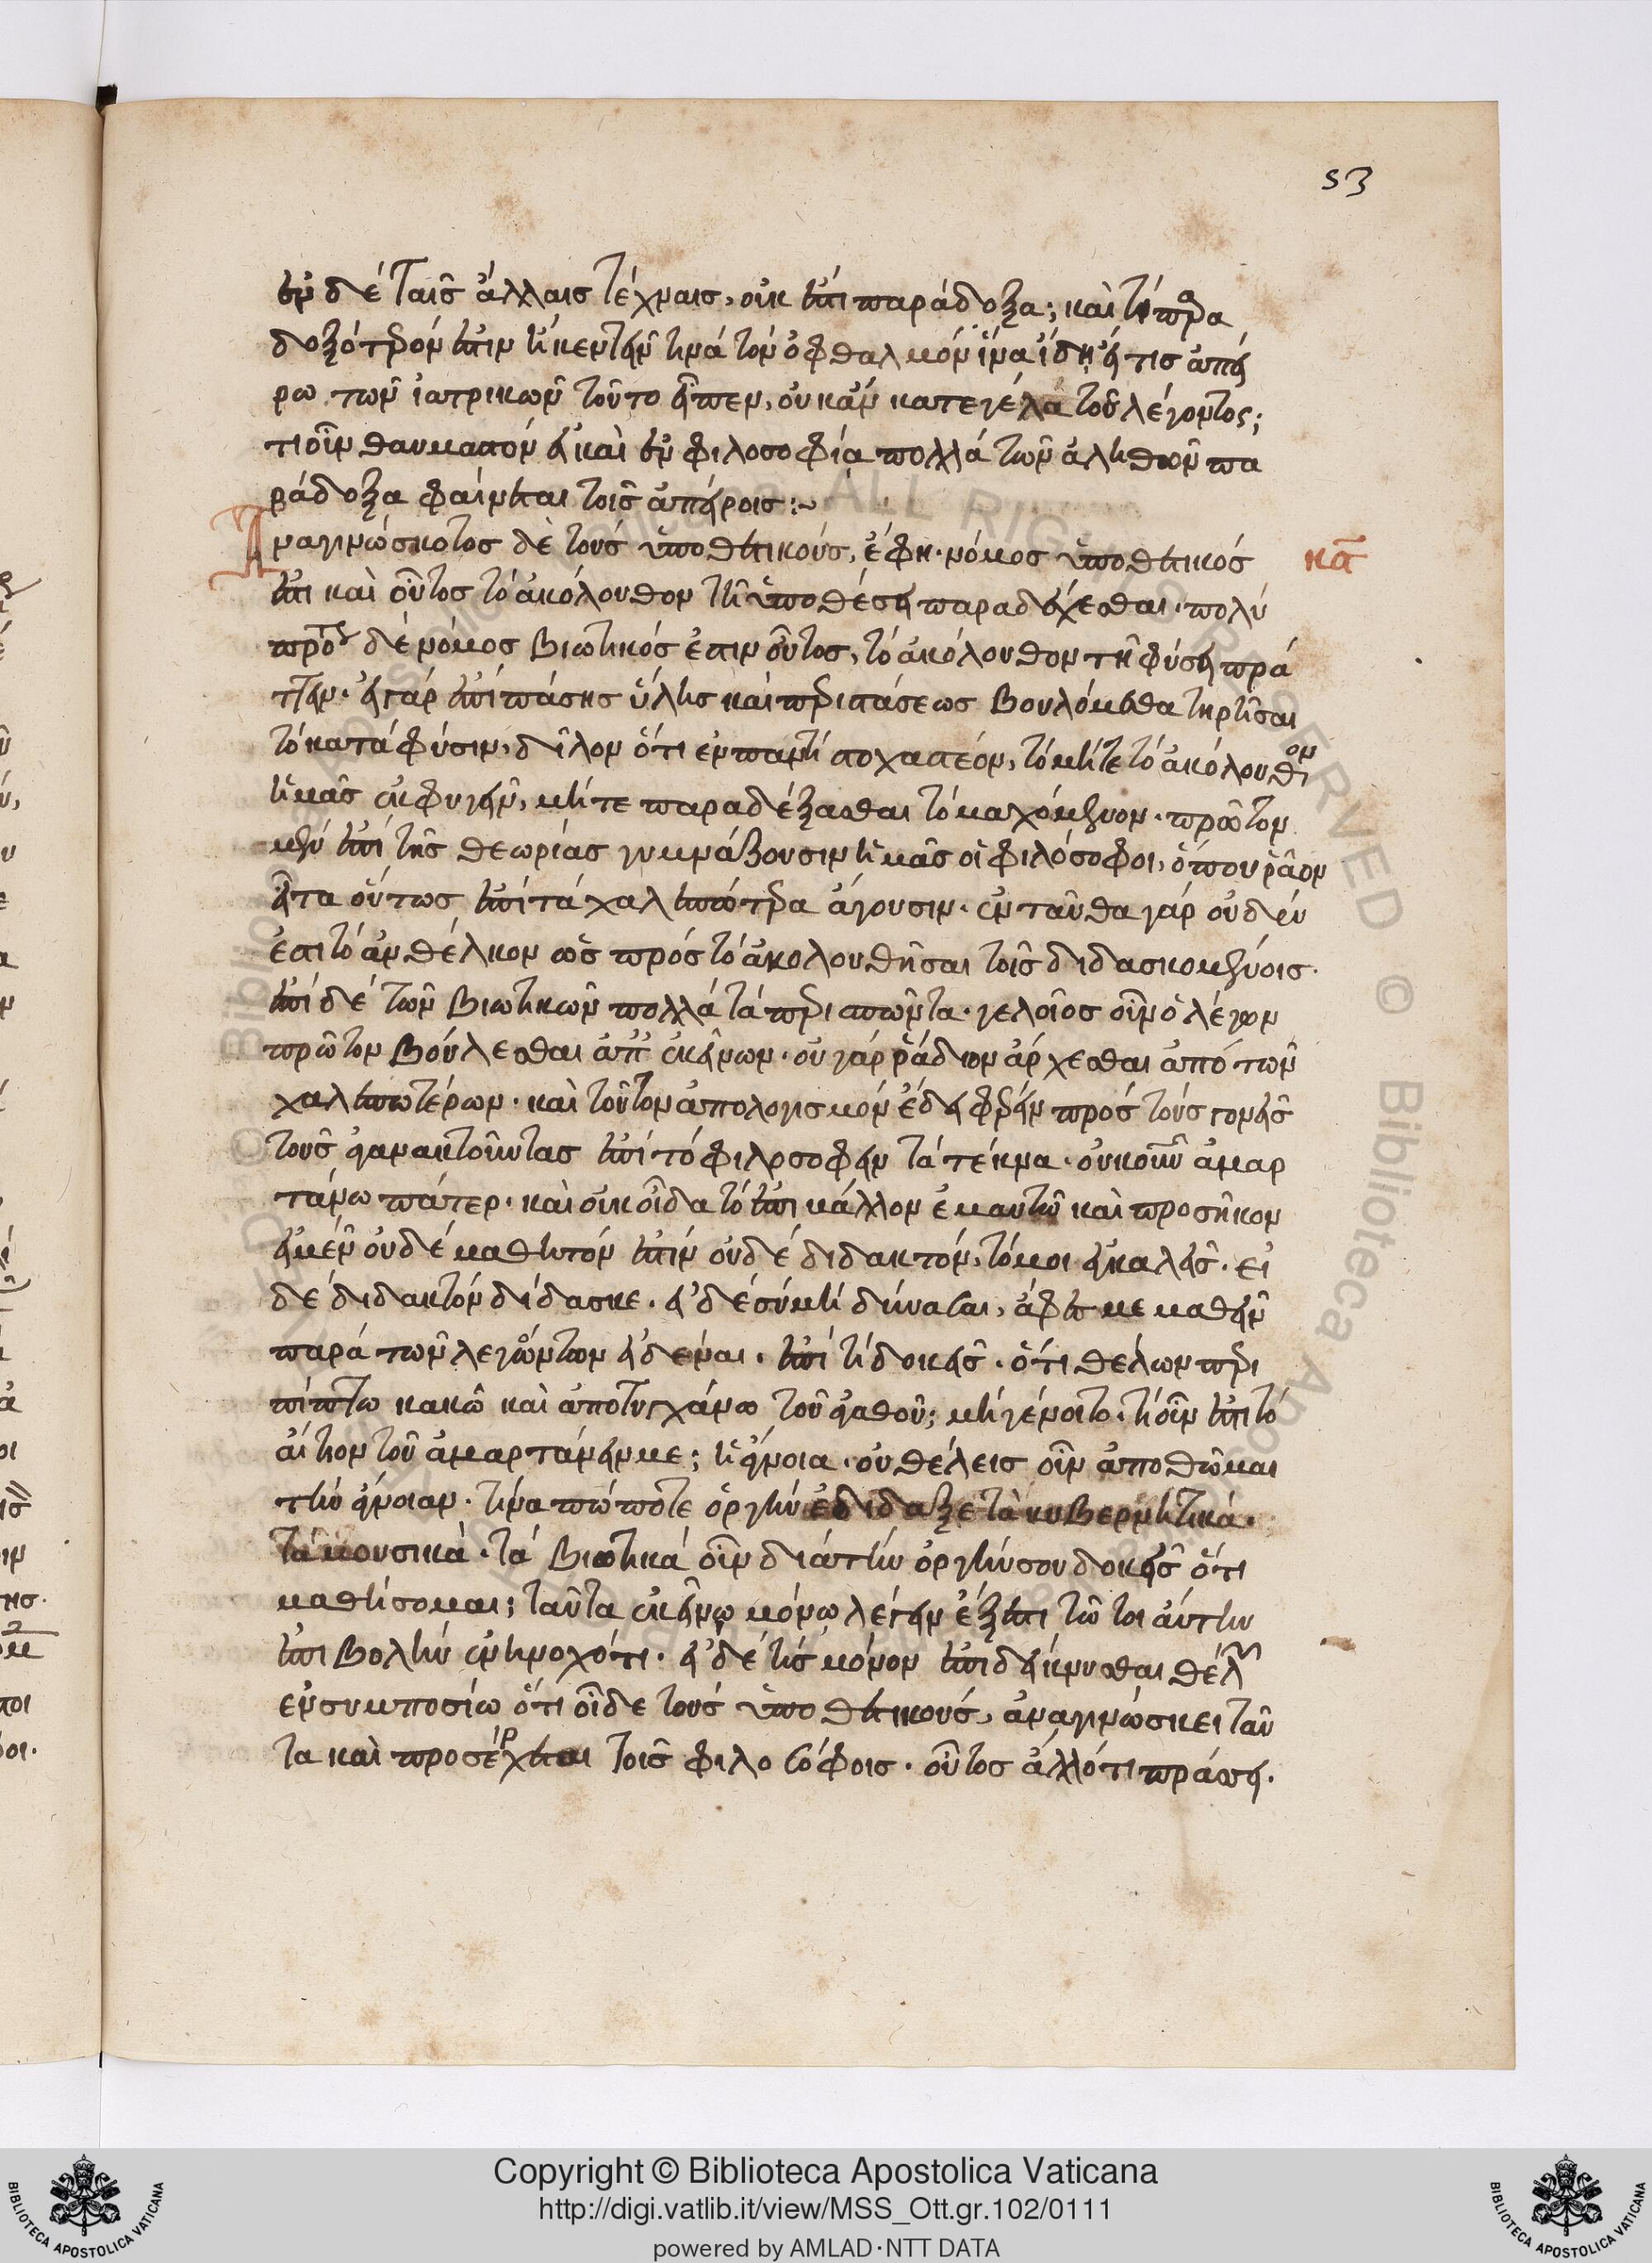 53
ἐν δὲ ταῖς ἄλλαις τέχναις, οὐκ ἔστι παράδοξα; καὶ τί παρα
δοξότερόν ἐστιν ἢ κεντεῖν τινὰ τὸν ὀφθαλμὸν ἵνα ἴδῃ εἴ τις ἀπεί
ρω τῶν ἰατρικῶν τοῦτο εἶπεν, οὐκ ἂν κατεγέλα τοῦ λέγοντος;
τί οὖν θαυμαστὸν εἰ καὶ ἐν φιλοσοφία πολλὰ τῶν ἀληθῶν πα
ράδοξα φαίνεται τοῖς ἀπείροις :~
Ἀναγινώσκοτος δὲ τοὺς ὑποθετικούς, ἔφη. νόμος ὑποθετικός κα
ἐστι καὶ οὗτος τὸ ἀκόλουθον τῆ ὑποθέσει παραδέχεσθαι. πολὺ
πρότερον δὲ νόμος βιωτικός ἐστιν οὗτος, τὸ ἀκόλουθον τῆ φύσει πρά
ττειν. εἰ γὰρ ἐπὶ πάσης ὕλης καὶ περιστάσεως βουλόμεθα τηρῆσαι
τὸ κατὰ φύσιν, δῆλον ὅτι ἐν παντὶ στοχαστέον, τὸ μήτε τὸ ἀκόλουθον
ἡμᾶς ἐκφυγεῖν, μήτε παραδέξασθαι τὸ μαχόμενον. πρῶτον
μὲν ἐπὶ τῆς θεωρίας γυμνάζουσιν ἡμᾶς οἱ φιλόσοφοι, ὅπου ῥᾶον
εἶτα οὕτως ἐπὶ τὰ χαλεπώτερα ἄγουσιν. ἐνταῦθα γὰρ οὐδέν
ἐστι τὸ ἀνθέλκον ὡς πρὸς τὸ ἀκολουθῆσαι τοῖς διδασκομένοις.
ἐπὶ δὲ τῶν βιωτικῶν πολλὰ τὰ περισπῶντα. γελοῖος οὖν ὁ λέγων
πρῶτον βούλεσθαι ἀπ' ἐκείνων. οὐ γὰρ ῥάδιον ἄρχεσθαι ἀπὸ τῶν
χαλεπωτέρων. καὶ τοῦτον ἀπολογισμὸν ἔδει φέρειν πρὸς τοὺς γονεῖς
τοὺς ἀγανακτοῦντας ἐπὶ τὸ φιλοσοφεῖν τὰ τέκνα. οὐκοῦν ἁμαρ
τάνω πάτερ. καὶ οὐκ οἶδα τὸ ἐπιβάλλον ἐμαυτῶ καὶ προσῆκον
εἰ μὲν οὐδὲ μαθητόν ἐστιν οὐδὲ διδακτόν, τί μοι ἐγκαλεῖς. εἰ
δὲ διδακτὸν δίδασκε. εἰ δὲ σὺ μὴ δύνασαι, ἄφες με μαθεῖν
παρὰ τῶν λεγόντων εἰδέναι. ἐπεὶ τί δοκεῖς. ὅτι θέλων περι
πίπτω κακῶ καὶ ἀποτυγχάνω τοῦ ἀγαθοῦ; μὴ γένοιτο. τί οὖν ἐστι τὸ
αἴτιον τοῦ ἁμαρτάνειν με; ἡ ἄγνοια. οὐ θέλεις οὖν ἀποθῶμαι
τὴν ἄγνοιαν. τίνα πώποτε ὀργὴ ἐδίδαξε τὰ κυβερνητικά.
τὰ μουσικά. τὰ βιωτικὰ οὖν διὰ τὴν ὀργήν σου δοκεῖς ὅτι
μαθήσομαι; ταῦτα ἐκείνῳ μόνω λέγειν ἔξεστι τῶ τοιαύτην
ἐπιβολὴν ἐνηνοχότι. εἰ δέ τις μόνον ἐπιδείκνυσθαι θέλων
ἐν συμποσίω ὅτι οἶδε τοὺς ὑποθετικούς, ἀναγινώσκει ταῦ
τα καὶ προσέρχεται τοῖς φιλοσόφοις. οὗτος ἄλλό τι πράσσει.
Copyright © Biblioteca Apostolica Vaticana
http://digi.vatlib.it/view/MSS_Ott.gr.102/0111
powered by AMLAD·NTT DATA
BIBLIOTECA APOSTOLICA VATICANA
BIBLIOTECA APOSTOLICA VATICANA